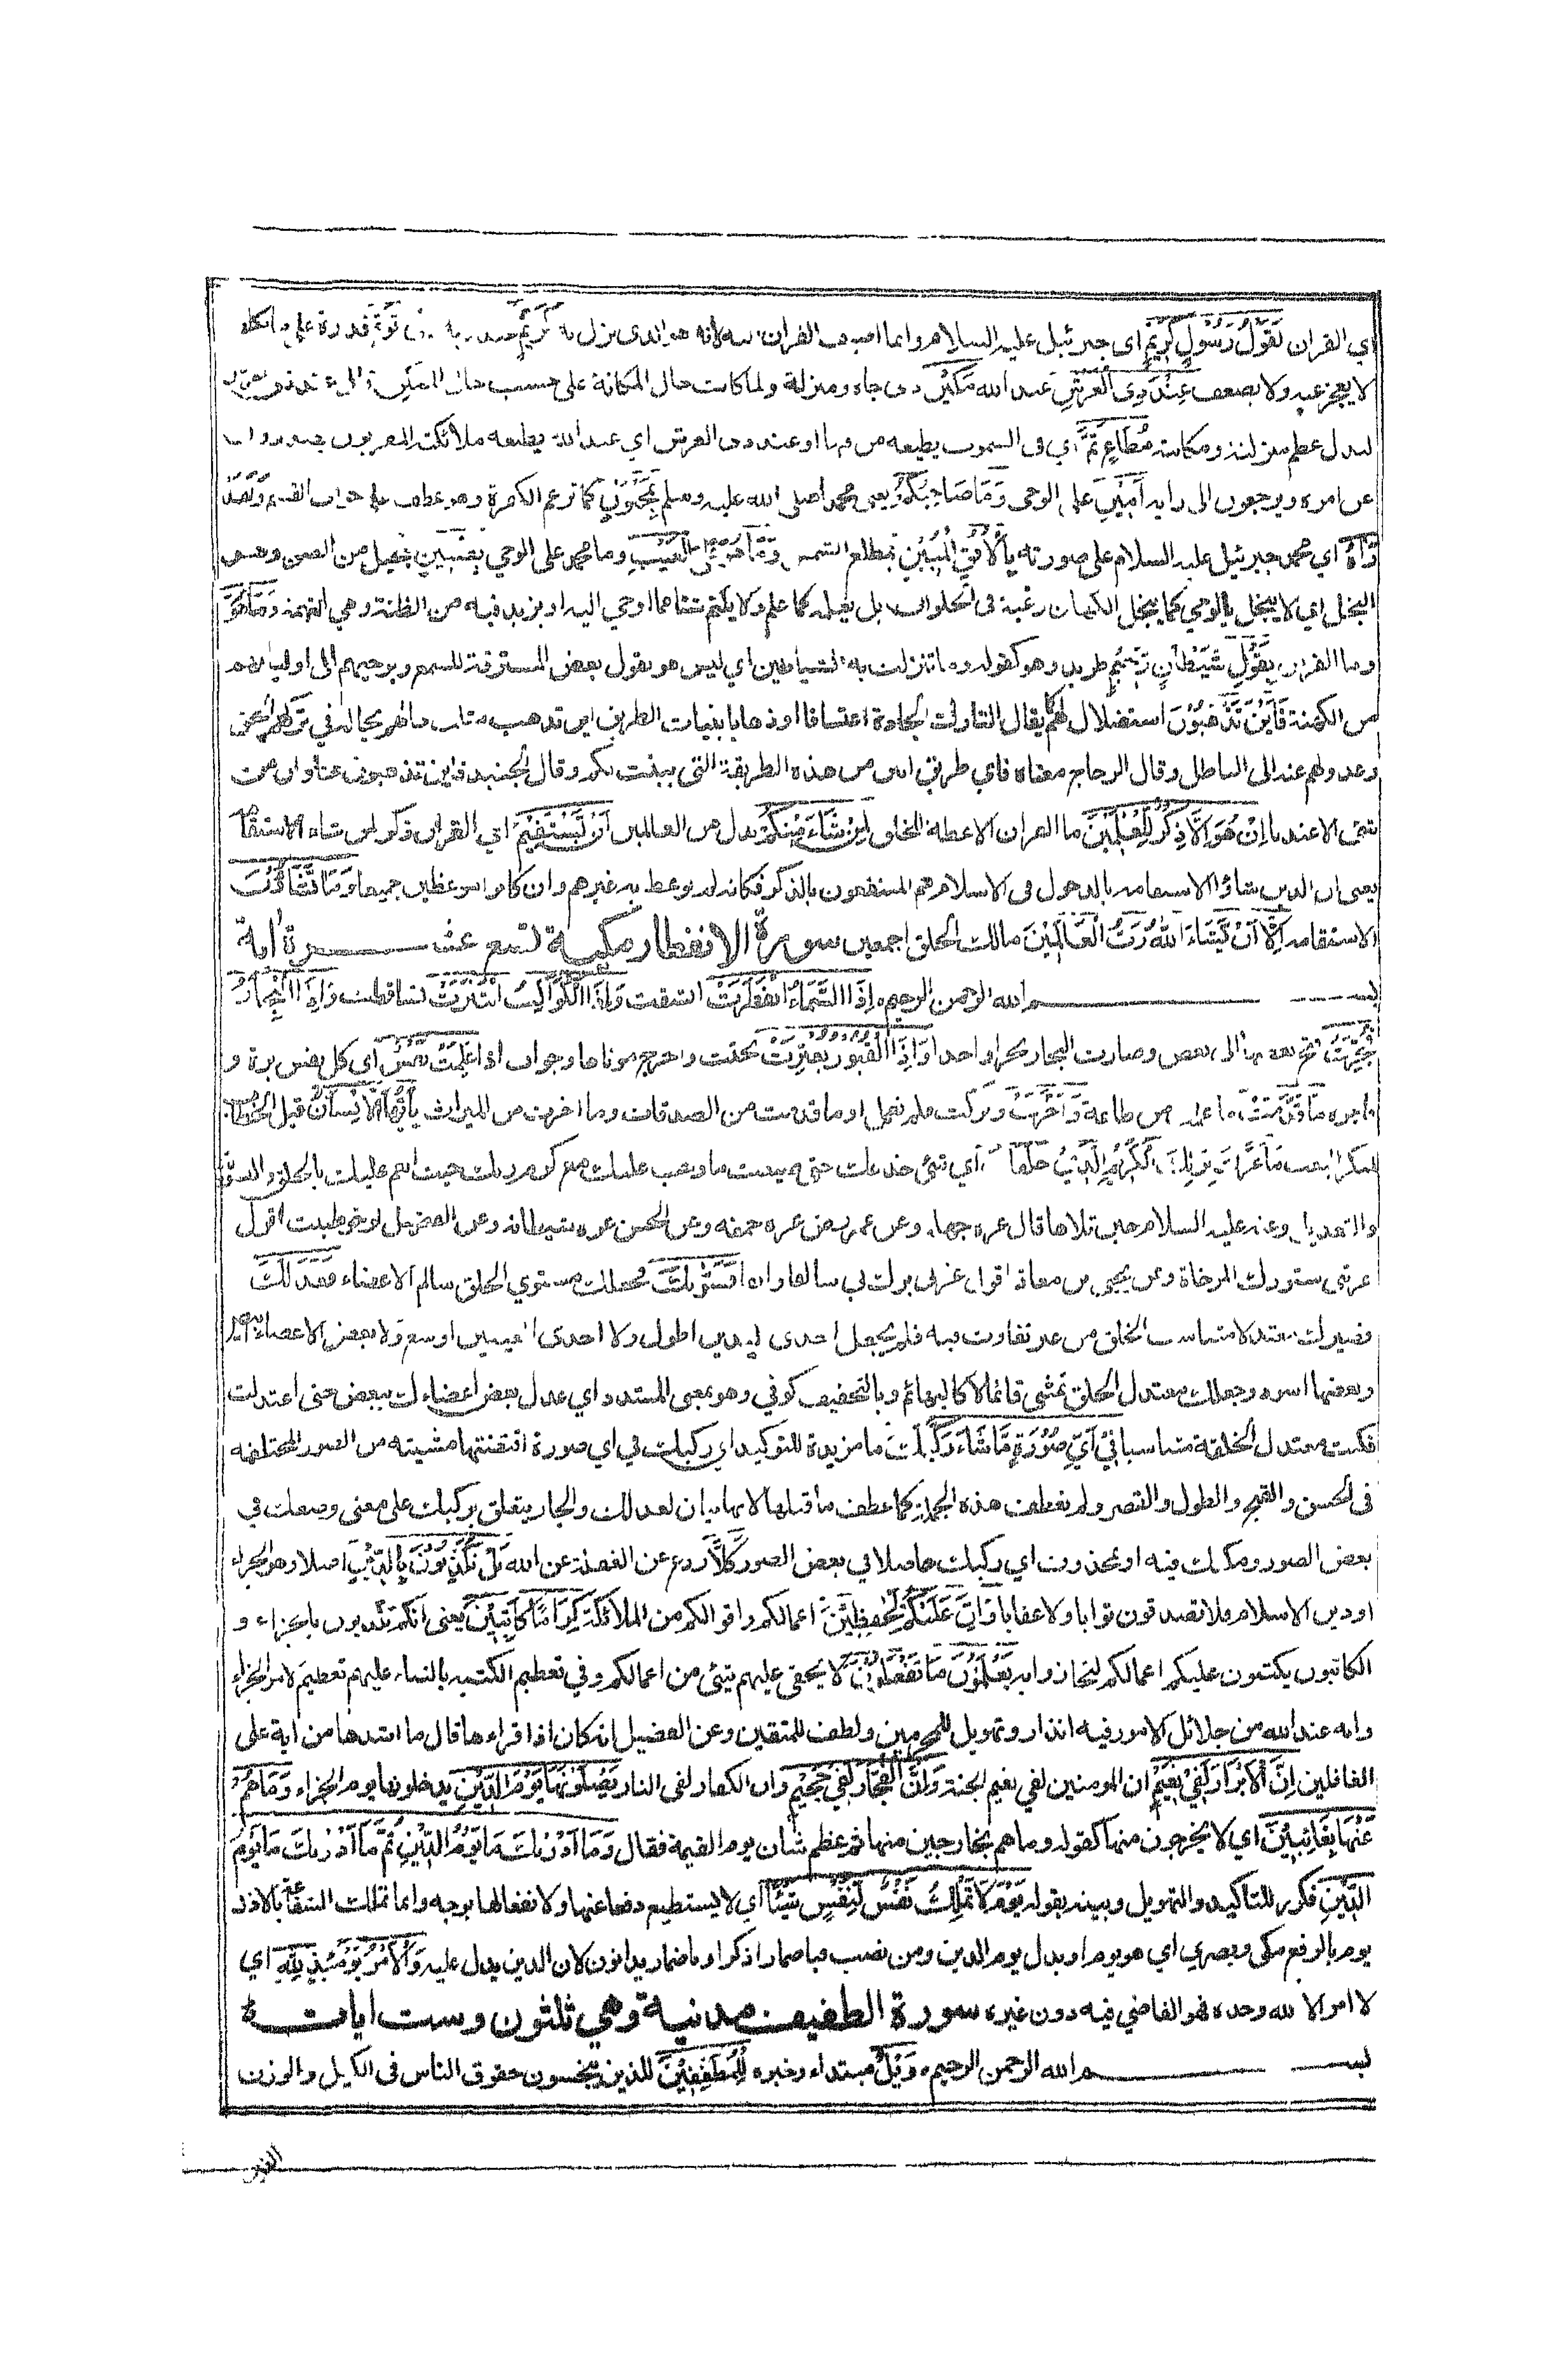 اي القران لَقَوْلُ رَسُوْلٍ كَرِيْمٍ اى جبرئيل عليه السلام وانما اضيف القران اليه لانه هو الذى نزل به كَرِيْمٍ عند ربه ذى قُوَّةٍ قدرة على ما يكلف
لا يعجز عنه ولا يضعف عِنْدَ ذِى الْعَرْشِ عند الله مَكِيْنٍ ذى جاه ومنزلة ولما كانت حال المكانة على حسب حال الممكن قال عند ذى العرش
ليدل على عظم منزلته ومكانته مُطَاعٍ ثَمَّ اي فى السموت يطيعه من فيها او عند ذى العرش اي عند الله يطيعه ملائكته المقربون يصدرون
عن امره ويرجعون الى رايه اَمِيْنٍ على الوحى وَمَا صَاحِبُكُمْ يعنى محمدا صلى الله عليه وسلم بِمَجْنُوْنٍ كما تزعم الكفرة وهو عطف على جواب القسم وَلَقَدْ
رَاٰهُ اي محمد جبرئيل عليه السلام على صورته بِالْاُفُقِ الْمُبِيْنِ بمطلع الشمس وَمَا هُوَ عَلَى الْغَيْبِ وما محمد على الوحي بِضَنِيْنٍ ببخيل من الضن وهو
البخل اي لا يبخل بالوحي كما يبخل الكهان رغبة فى الحلوان بل يعلمه كما علم ولا يكتم شيئا مما اوحي اليه او يزيد فيه من الظنة وهي التهمة وَمَا هُوَ
وما القران بِقَوْلِ شَيْطٰنٍ رَّجِيْمٍ طريد وهو كقوله وما تنزلت به الشياطين اي ليس هو بقول بعض المسترقة للسمع وبوحيهم الى اوليائهم
من الكهنة فَاَيْنَ تَذْهَبُوْنَ استضلال لهم كما يقال لتارك الجادة اعتسافا او ذهابا بنيات الطريق اين تذهب مثلت حالهم بحاله في تركهم الحق
وعدولهم عنه الى الباطل وقال الزجاج معناه فاي طريق تسلكون ابين من هذه الطريقة التى بينت لكم وقال الجنيد فاين تذهبون عنا وان من
شئ الا عندنا اِنْ هُوَ اِلَّا ذِكْرٌ لِّلْعٰلَمِيْنَ ما القران الا عظة للخلق لِمَنْ شَاءَ مِنْكُمْ بدل من العالمين اَنْ يَّسْتَقِيْمَ اي القران ذكر لمن شاء الاستقامة
يعنى ان الذين شاؤا الاستقامة بالدخول فى الاسلام هم المنتفعون بالذكر فكانه لم يوعظ به غيرهم وان كانوا موعظين جميعا وَمَا تَشَاءُوْنَ
الاستقامة اِلَّا اَنْ يَّشَاءَ اللّٰهُ رَبُّ الْعَالَمِيْنَ مالك الخلق اجمعين سورة الانفطار مكية تسع عشرة اية
بسم الله الرحمن الرحيم اِذَا السَّمَاءُ انْفَطَرَتْ انشقت وَاِذَا الْكَوَاكِبُ انْتَثَرَتْ تساقطت وَاِذَا الْبِحَارُ
فُجِّرَتْ فتح بعضها الى بعض وصارت البحار بحرا واحدا وَاِذَا الْقُبُوْرُ بُعْثِرَتْ بحثت واخرج موتاها وجواب اذا عَلِمَتْ نَفْسٌ اى كل نفس برة و
فاجرة مَّا قَدَّمَتْ ما عملت من طاعة وَاَخَّرَتْ وتركت فلم تعمل او ما قدمت من الصدقات وما اخرت من الميراث يٰاَيُّهَا الْاِنْسَانُ قيل الخطاب
لمنكرى البعث مَا غَرَّكَ بِرَبِّكَ الْكَرِيْمِ الَّذِيْ خَلَقَكَ اي شئ خدعك حتى ضيعت ما وجب عليك مع كرم ربك حيث انعم عليك بالخلق والتسوية
والتعديل وعنه عليه السلام حين تلاها قال غره جهله وعن عمر رض غره حمقه وعن الحسن غره شيطانه وعن الفضيل لو خوطبت اقول
غرتنى ستورك المرخاة وعن يحيى بن معاذ اقول غرنى برك بى سالفا وانفا فَسَوّٰىكَ فجعلك مستوي الخلق سالم الاعضاء فَعَدَلَكَ
فصيرك معتدلا متناسب الخلق من غير تفاوت فيه فلم يجعل احدى اليدين اطول ولا احدى العينين اوسع ولا بعض الاعضاء ابيض
وبعضها اسود وجعلك معتدل الخلق تمشى قائما لا كالبهائم وبالتخفيف كوفي وهو بمعنى المشدد اي عدل بعض اعضاءك ببعض حتى اعتدلت
فكنت معتدل الخلقة متناسبا فِيْ اَيِّ صُوْرَةٍ مَّا شَاءَ رَكَّبَكَ ما مزيدة للتوكيد اي ركبك في اي صورة اقتضتها مشيته من الصور المختلفة
فى الحسن والقبح والطول والقصر ولم تعطف هذه الجملة كما عطف ما قبلها لانها بيان لعدلك والجار يتعلق بركبك على معنى وضعك في
بعض الصور ومكنك فيه او بمحذوف اي ركبك حاصلا في بعض الصور كَلَّا ردع عن الغفلة عن الله بَلْ تُكَذِّبُوْنَ بِالدِّيْنِ اصلا وهو الجزاء
او دين الاسلام فلا تصدقون ثوابا ولا عقابا وَاِنَّ عَلَيْكُمْ لَحٰفِظِيْنَ اعمالكم واقوالكم من الملائكة كِرَامًا كَاتِبِيْنَ يعنى انكم تكذبون بالجزاء و
الكاتبون يكتبون عليكم اعمالكم لتجازوا بها يَعْلَمُوْنَ مَا تَفْعَلُوْنَ لا يخفى عليهم شئ من اعمالكم وفي تعظيم الكتبة بالثناء عليهم تعظيم لامر الجزاء
وانه عند الله من جلائل الامور فيه انذار وتهويل للمجرمين ولطف للمتقين وعن الفضيل انه كان اذا قراءها قال ما اشدها من اية على
الغافلين اِنَّ الْاَبْرَارَ لَفِيْ نَعِيْمٍ ان المومنين لفي نعيم الجنة وَاِنَّ الْفُجَّارَ لَفِيْ جَحِيْمٍ وان الكفار لفى النار يَصْلَوْنَهَا يَوْمَ الدِّيْنِ يدخلونها يوم الجزاء وَمَا هُمْ
عَنْهَا بِغَائِبِيْنَ اي لا يخرجون منها كقوله وما هم بخارجين منها ثم عظم شان يوم القيمة فقال وَمَا اَدْرٰىكَ مَا يَوْمُ الدِّيْنِ ثُمَّ مَا اَدْرٰىكَ مَا يَوْمُ
الدِّيْنِ فكرر للتاكيد والتهويل وبينه بقوله يَوْمَ لَا تَمْلِكُ نَفْسٌ لِّنَفْسٍ شَيْئًا اي لا يستطيع دفعا عنها ولا نفعا لها بوجه وانما تملك الشفاعة بالاذن
يوم بالرفع مكى وبصري اي هو يوم او بدل يوم الدين ومن نصب فباضمار اذكر او باضمار يدانون لان الدين يدل عليه وَالْاَمْرُ يَوْمَئِذٍ لِّلّٰهِ اي
لا امر الا لله وحده فهو القاضي فيه دون غيره سورة الطفيف مدنية وهي ثلثون وست ايات
بسم الله الرحمن الرحيم وَيْلٌ مبتداء وخبره لِّلْمُطَفِّفِيْنَ للذين يبخسون حقوق الناس فى الكيل والوزن